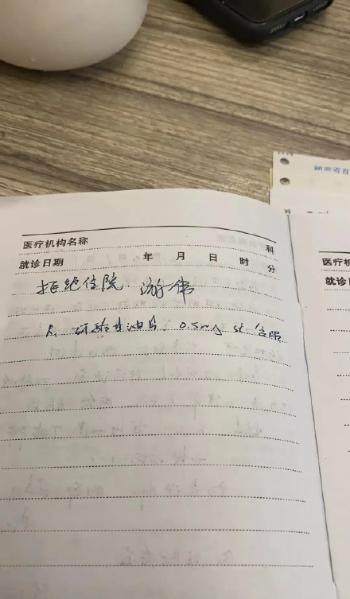 湖南省
医疗机构名称 科
就诊日期 年 月 日 时 分
拒绝住院. 游伟
硝酸甘油片. 0.5mg st 含服
医疗
就诊